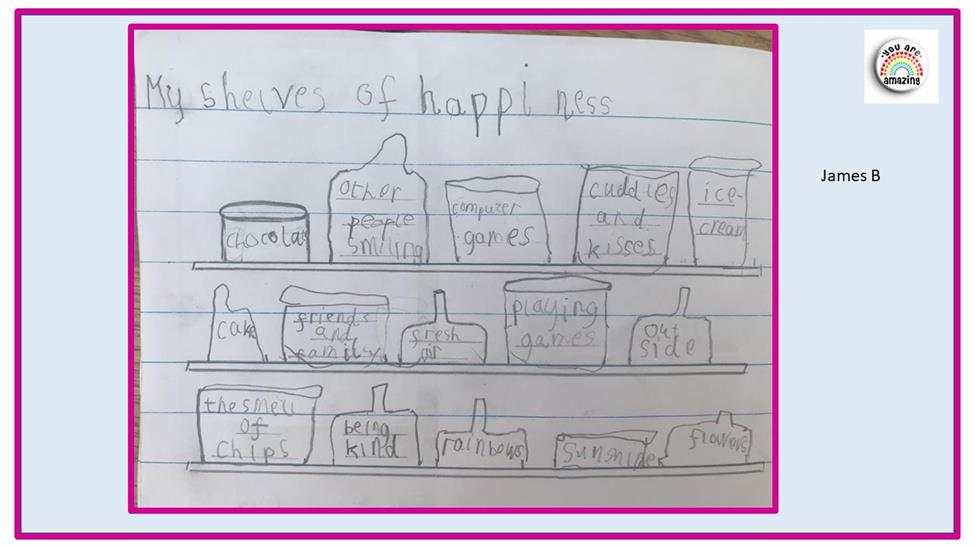 My shelves of happiness
chocolate
other
people
smiling
computer
games
cuddles
and
kisses
ice-
cream
cake
friends
and
family
fresh
air
playing
games
out
side
the smell
of
chips
being
kind
rainbows
sunshine
flowers
you are
amazing
James B